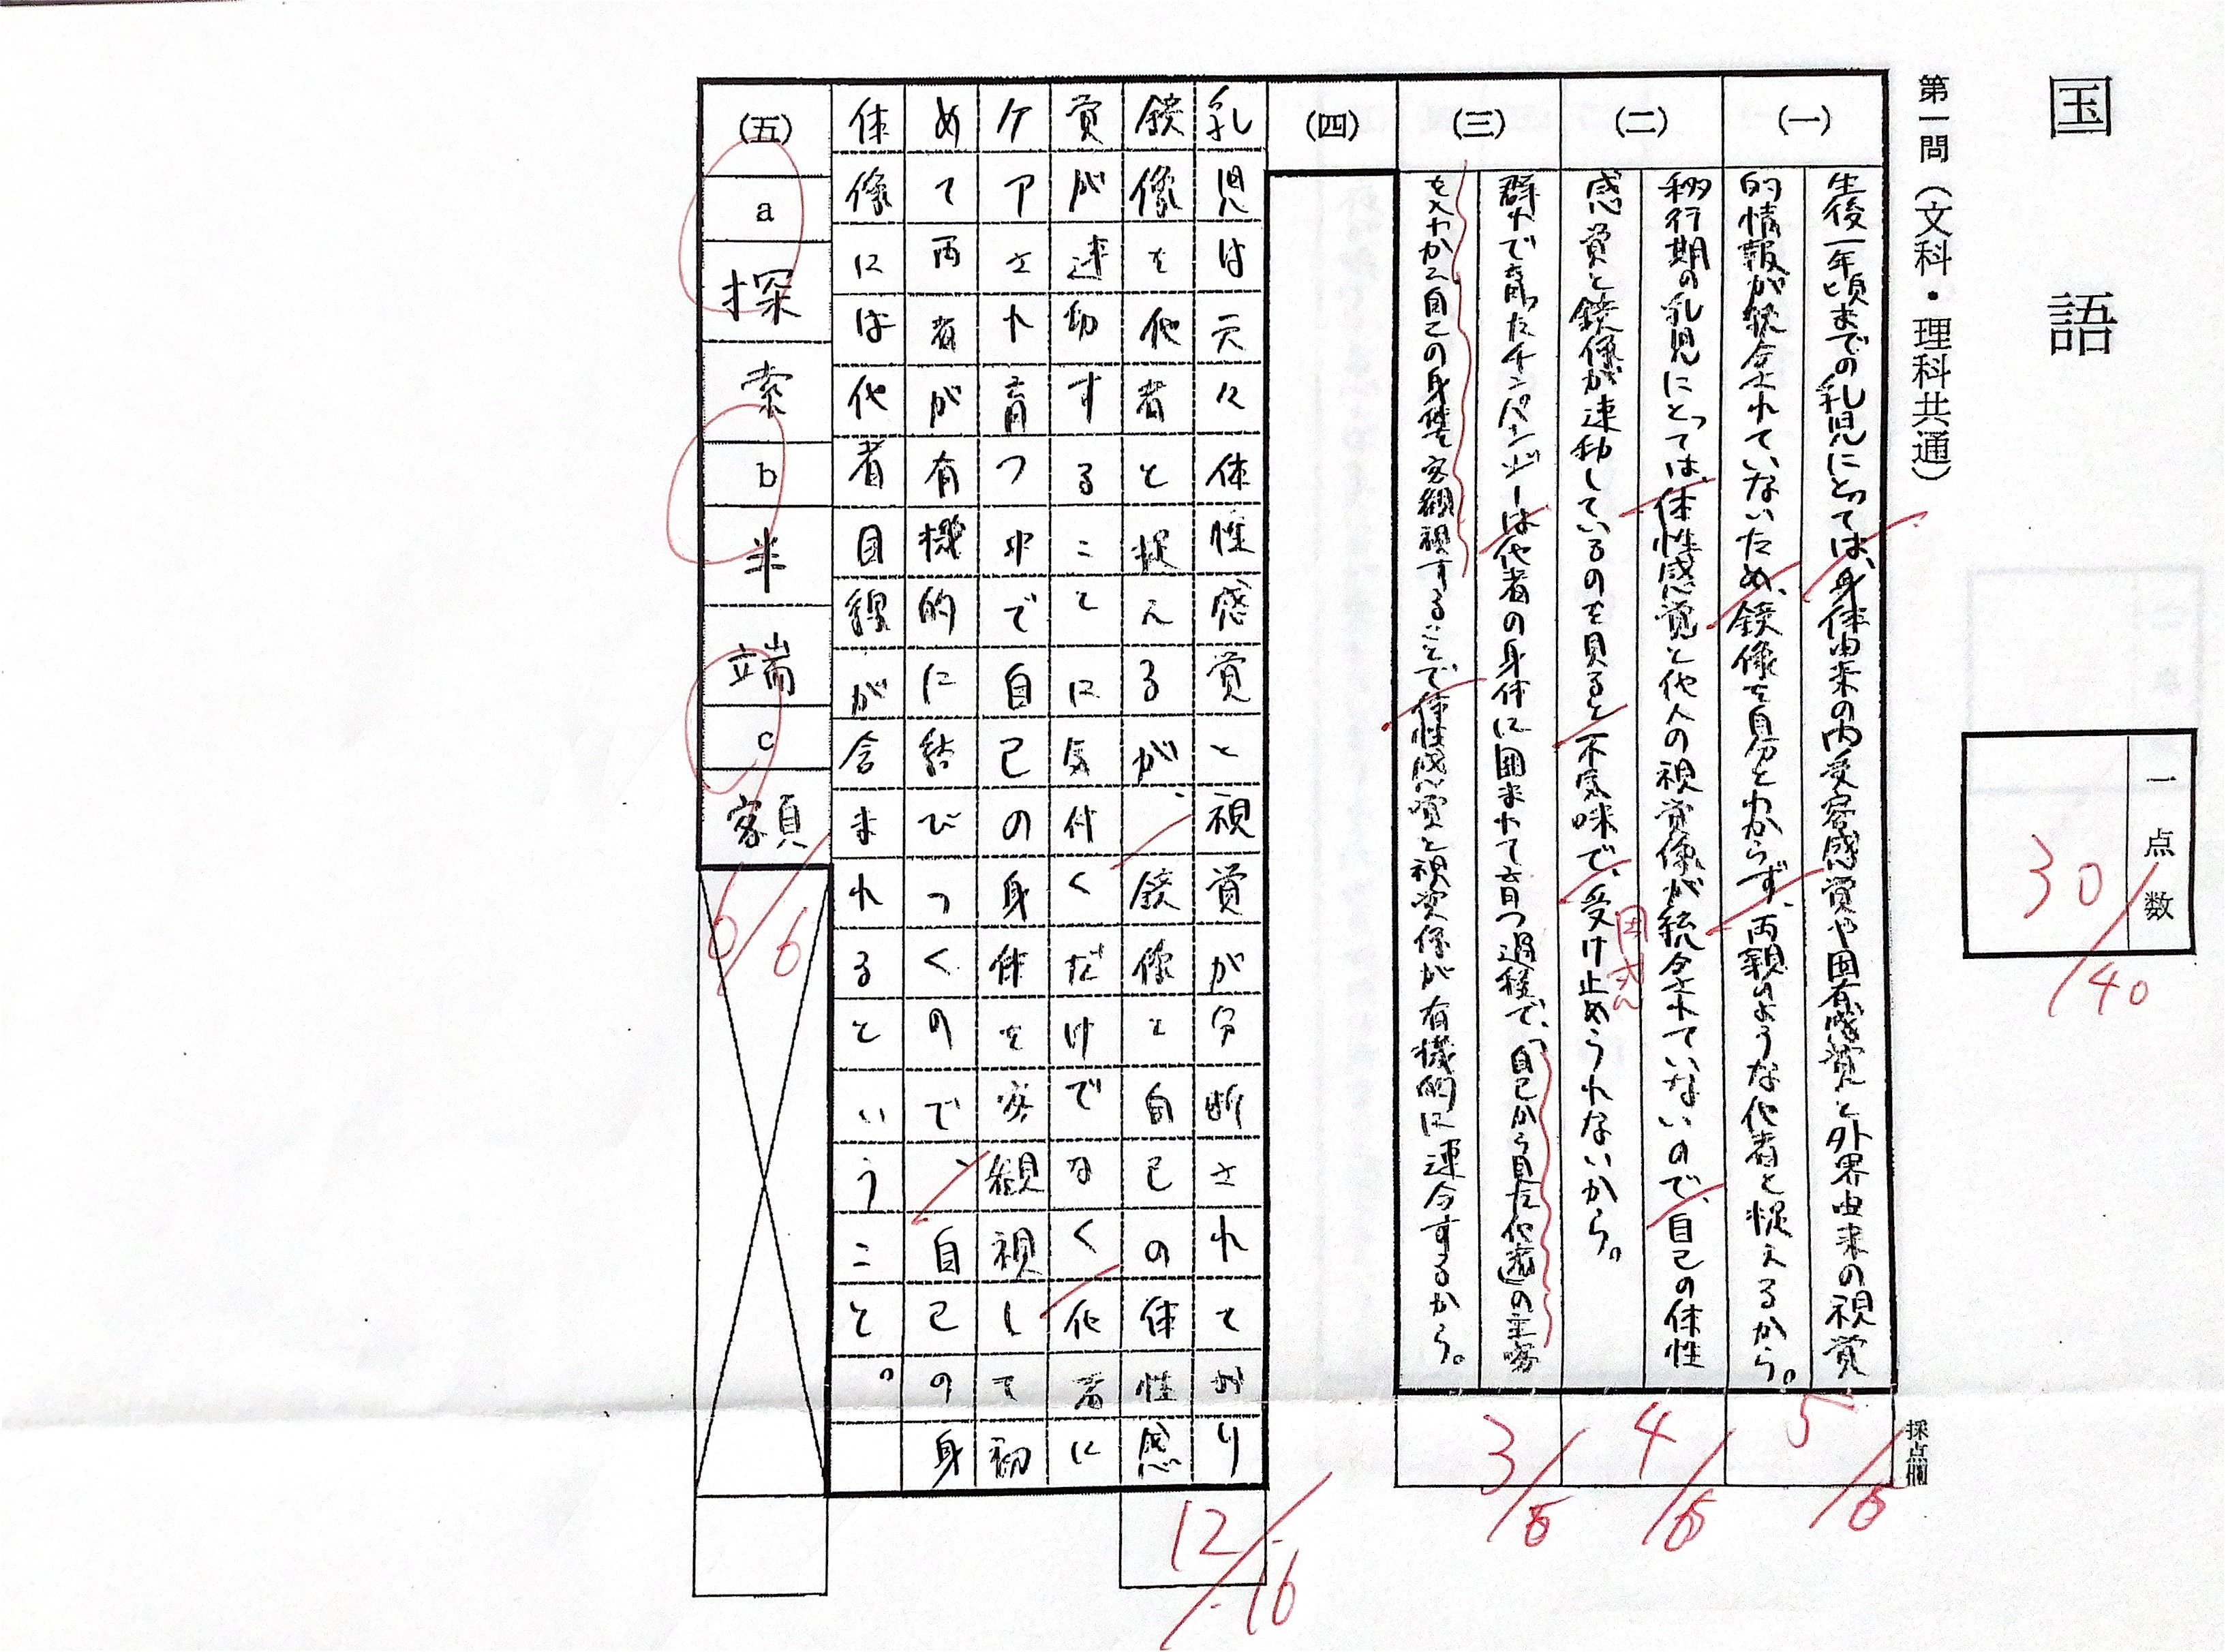 国語
第一問（文科・理科共通）
一
点数
30/40
(一)
生後一年頃までの乳児にとっては、身体由来の内受容感覚や固有感覚と外界由来の視覚
的情報が統合されていないため、鏡像を自分とわからず、両親のような他者と捉えるから。
(二)
移行期の乳児にとっては、体性感覚と他人の視覚像が統合されていないので、自己の体性
感覚と鏡像が連動しているのを見ると不気味で、受け止めうれないから。
(三)
群れで育ったチンパンジーは他者の身体に囲まれて育つ過程で、「自己から見た他者」の主客
を入れかえ自己の身体を客観視することで体性感覚と視覚像が有機的に連合するから。
採点欄
5/6
4/6
3/6
(四)
乳児は元々体性感覚と視覚が分断されており
鏡像を他者と捉えるが、鏡像と自己の体性感
覚が連動することに気付くだけでなく他者に
ケアされ育つ中で自己の身体を客観視して初
めて両者が有機的に結びつくので、自己の身
体像には他者目線が含まれるということ。
12/16
(五)
a
探索
b
半端
c
客員
6/6